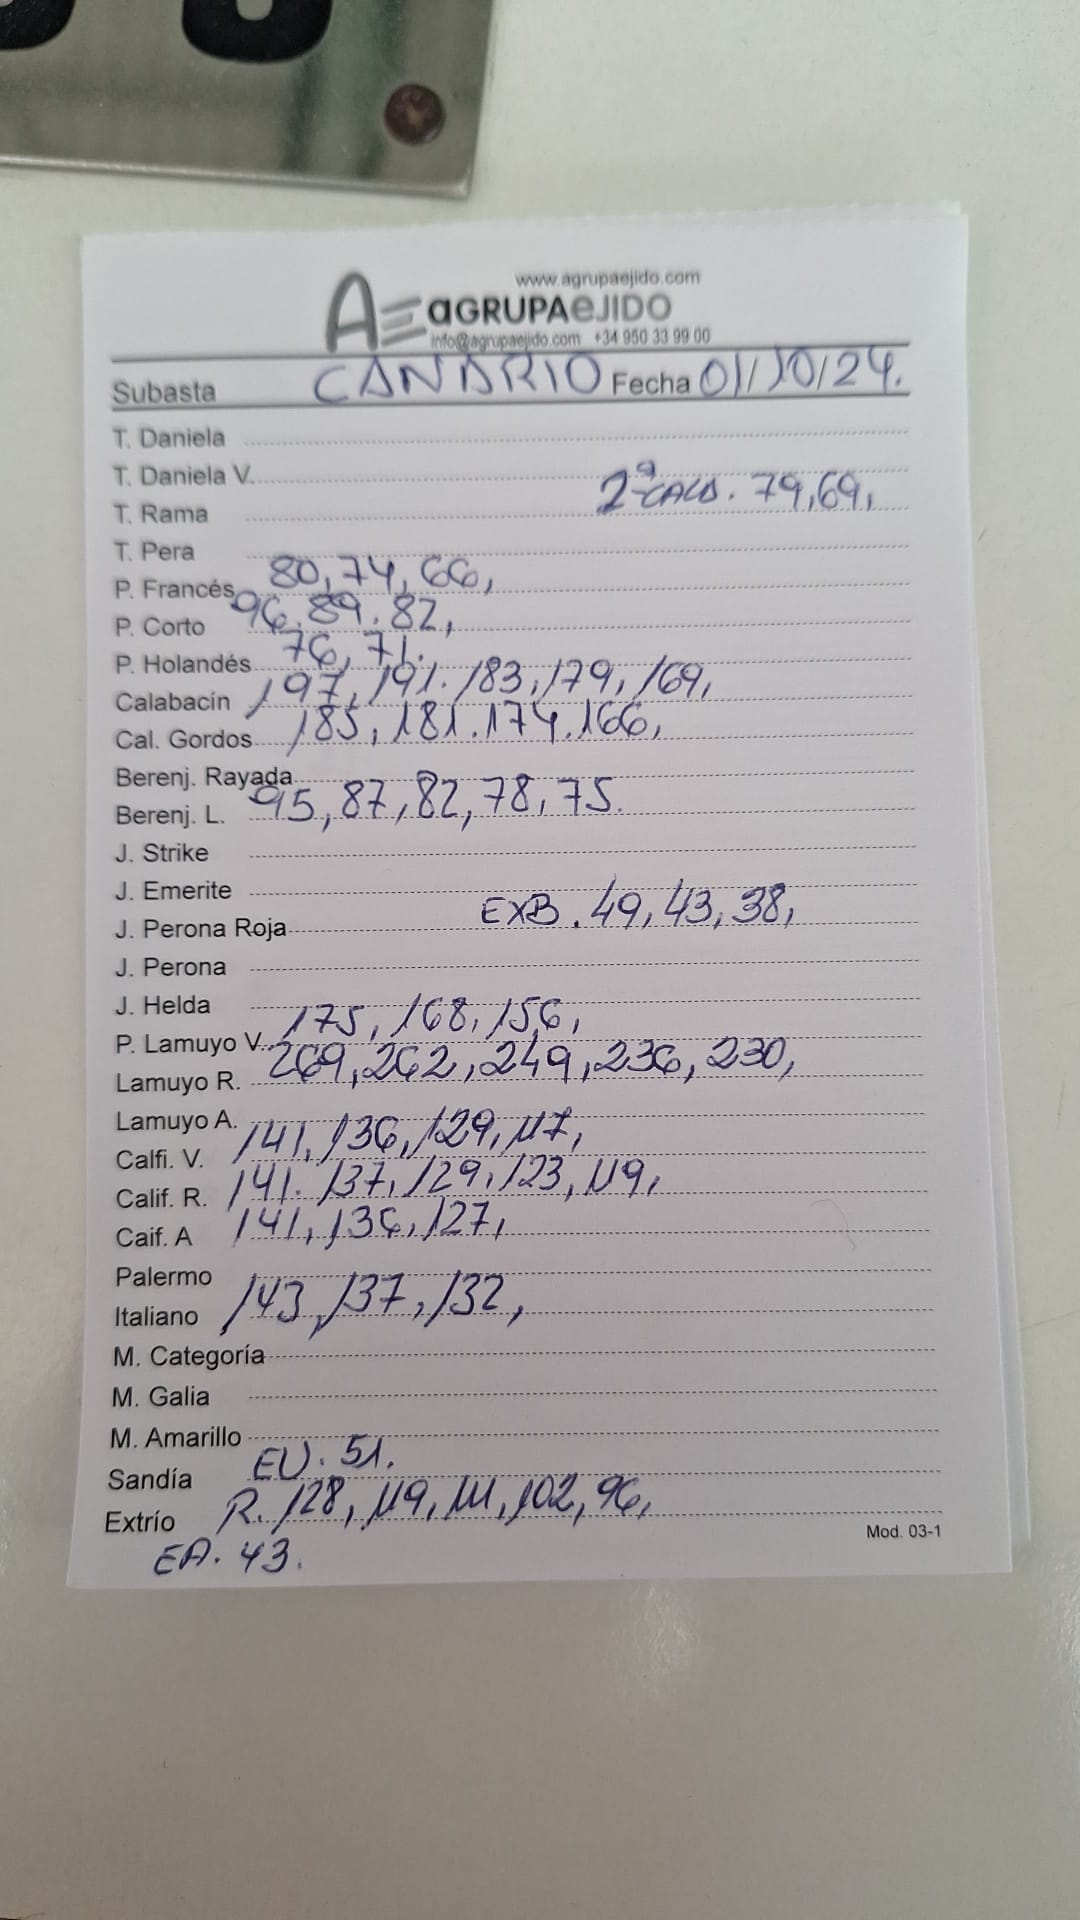 www.agrupaejido.com
AE aGRUPAeJIDO
info@agrupaejido.com +34 950 33 99 00
Subasta CANARIO Fecha 01/10/24.
T. Daniela
T. Daniela V.
2ª CALD. 79,69,
T. Rama
T. Pera
P. Francés 80,74,66,
P. Corto 96.89.82,
P. Holandés 76,71.
Calabacín 197,191.183,179,169,
Cal. Gordos 185,181.174.166,
Berenj. Rayada
Berenj. L. 95,87,82,78,75.
J. Strike
J. Emerite
J. Perona Roja EXB.49,43,38,
J. Perona
J. Helda
P. Lamuyo V. 175,168,156,
Lamuyo R. 269,262,249,236,230,
Lamuyo A.
Calfi. V. 141,136,129,117,
Calif. R. 141.137,129,123,119,
Caif. A 141,136,127,
Palermo
Italiano 143,137,132,
M. Categoría
M. Galia
M. Amarillo
Sandía EU.51.
Extrío R.128,119,111,102,96,
Mod. 03-1
EA.43.